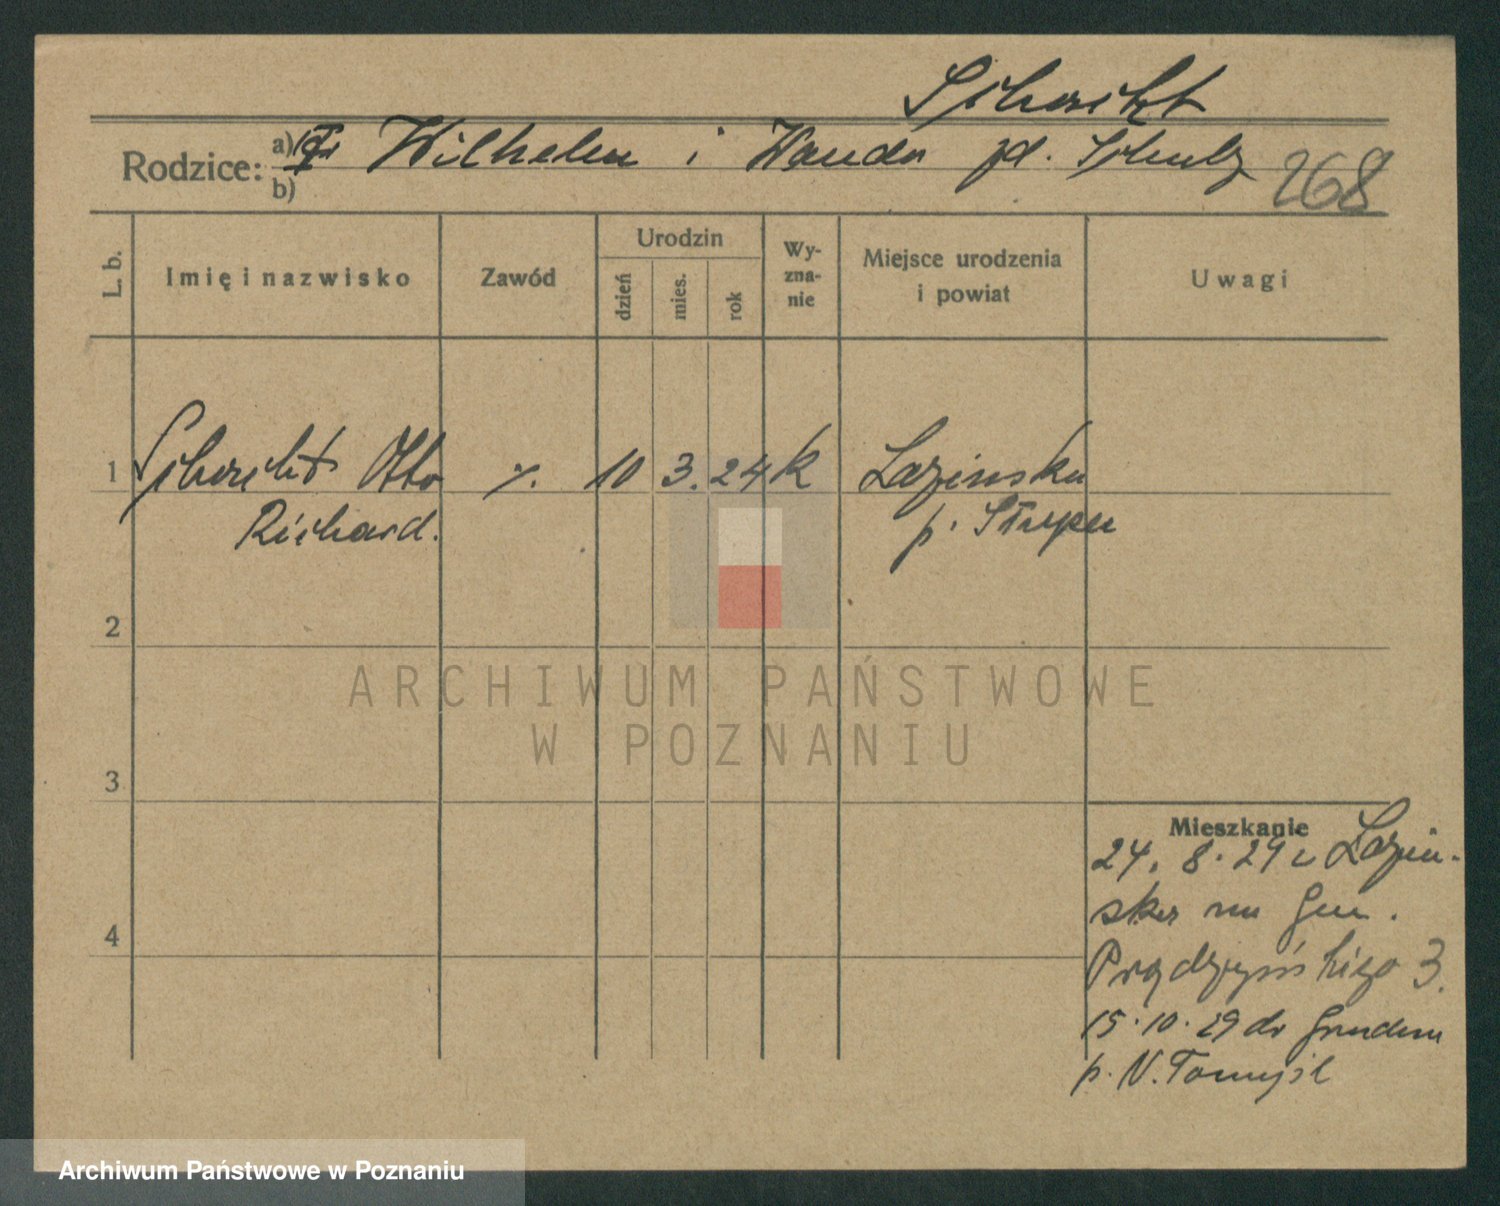 Rodzice: a) Wilhelm i Wanda zd. Schulz 268
b)
L. b.
Imię i nazwisko
Zawód
Urodzin
dzień
mies.
rok
Wy-
zna-
nie
Miejsce urodzenia
i powiat
Uwagi
1 Otto ·/. 10 3. 24 k Lazinska
Richard. p. Słupca
2
3
4
Mieszkanie
24. 8. 29 z Lazin-
ska na Gen.
Prądzyńskiego 3.
15. 10. 29 do
p. N. Tomyśl
ARCHIWUM PAŃSTWOWE
W POZNANIU
Archiwum Państwowe w Poznaniu